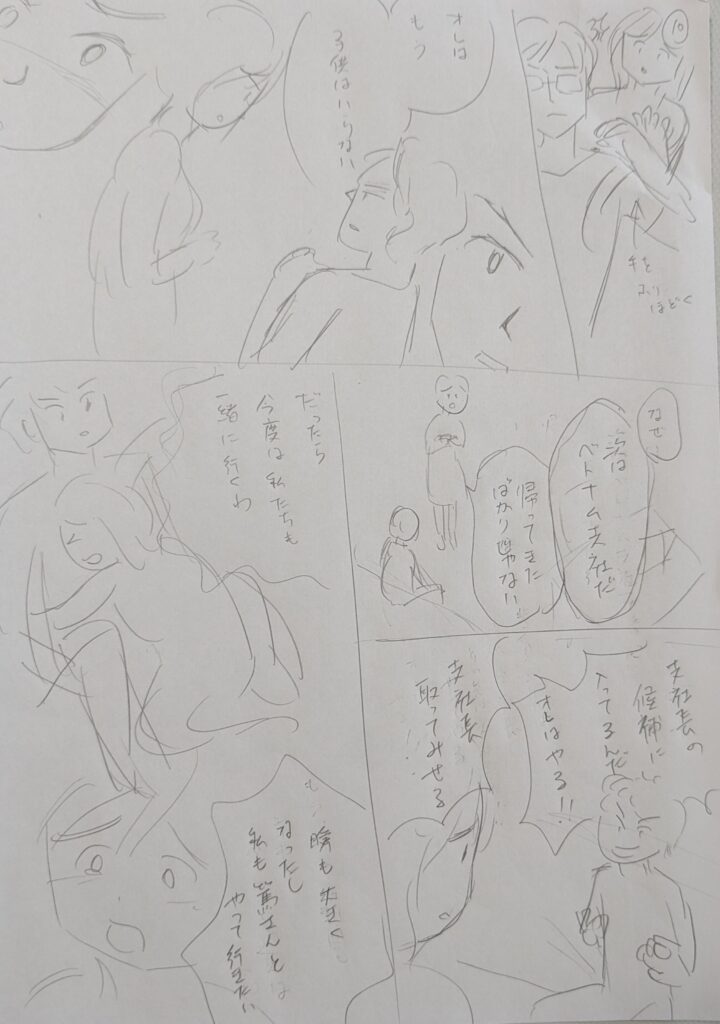 10
手を
ふり
ほどく
オレは
もう
子供はいらない
なぜ
次は
ベトナム支社だ
帰ってきた
ばかり
じゃない
支社長の
候補に
入ってるんだ
オレはやる!!
支社長
取ってみせる
だったら
今度は私たちも
一緒に行くわ
も大きく
なったし
私も篤さんとは
やって行きたい